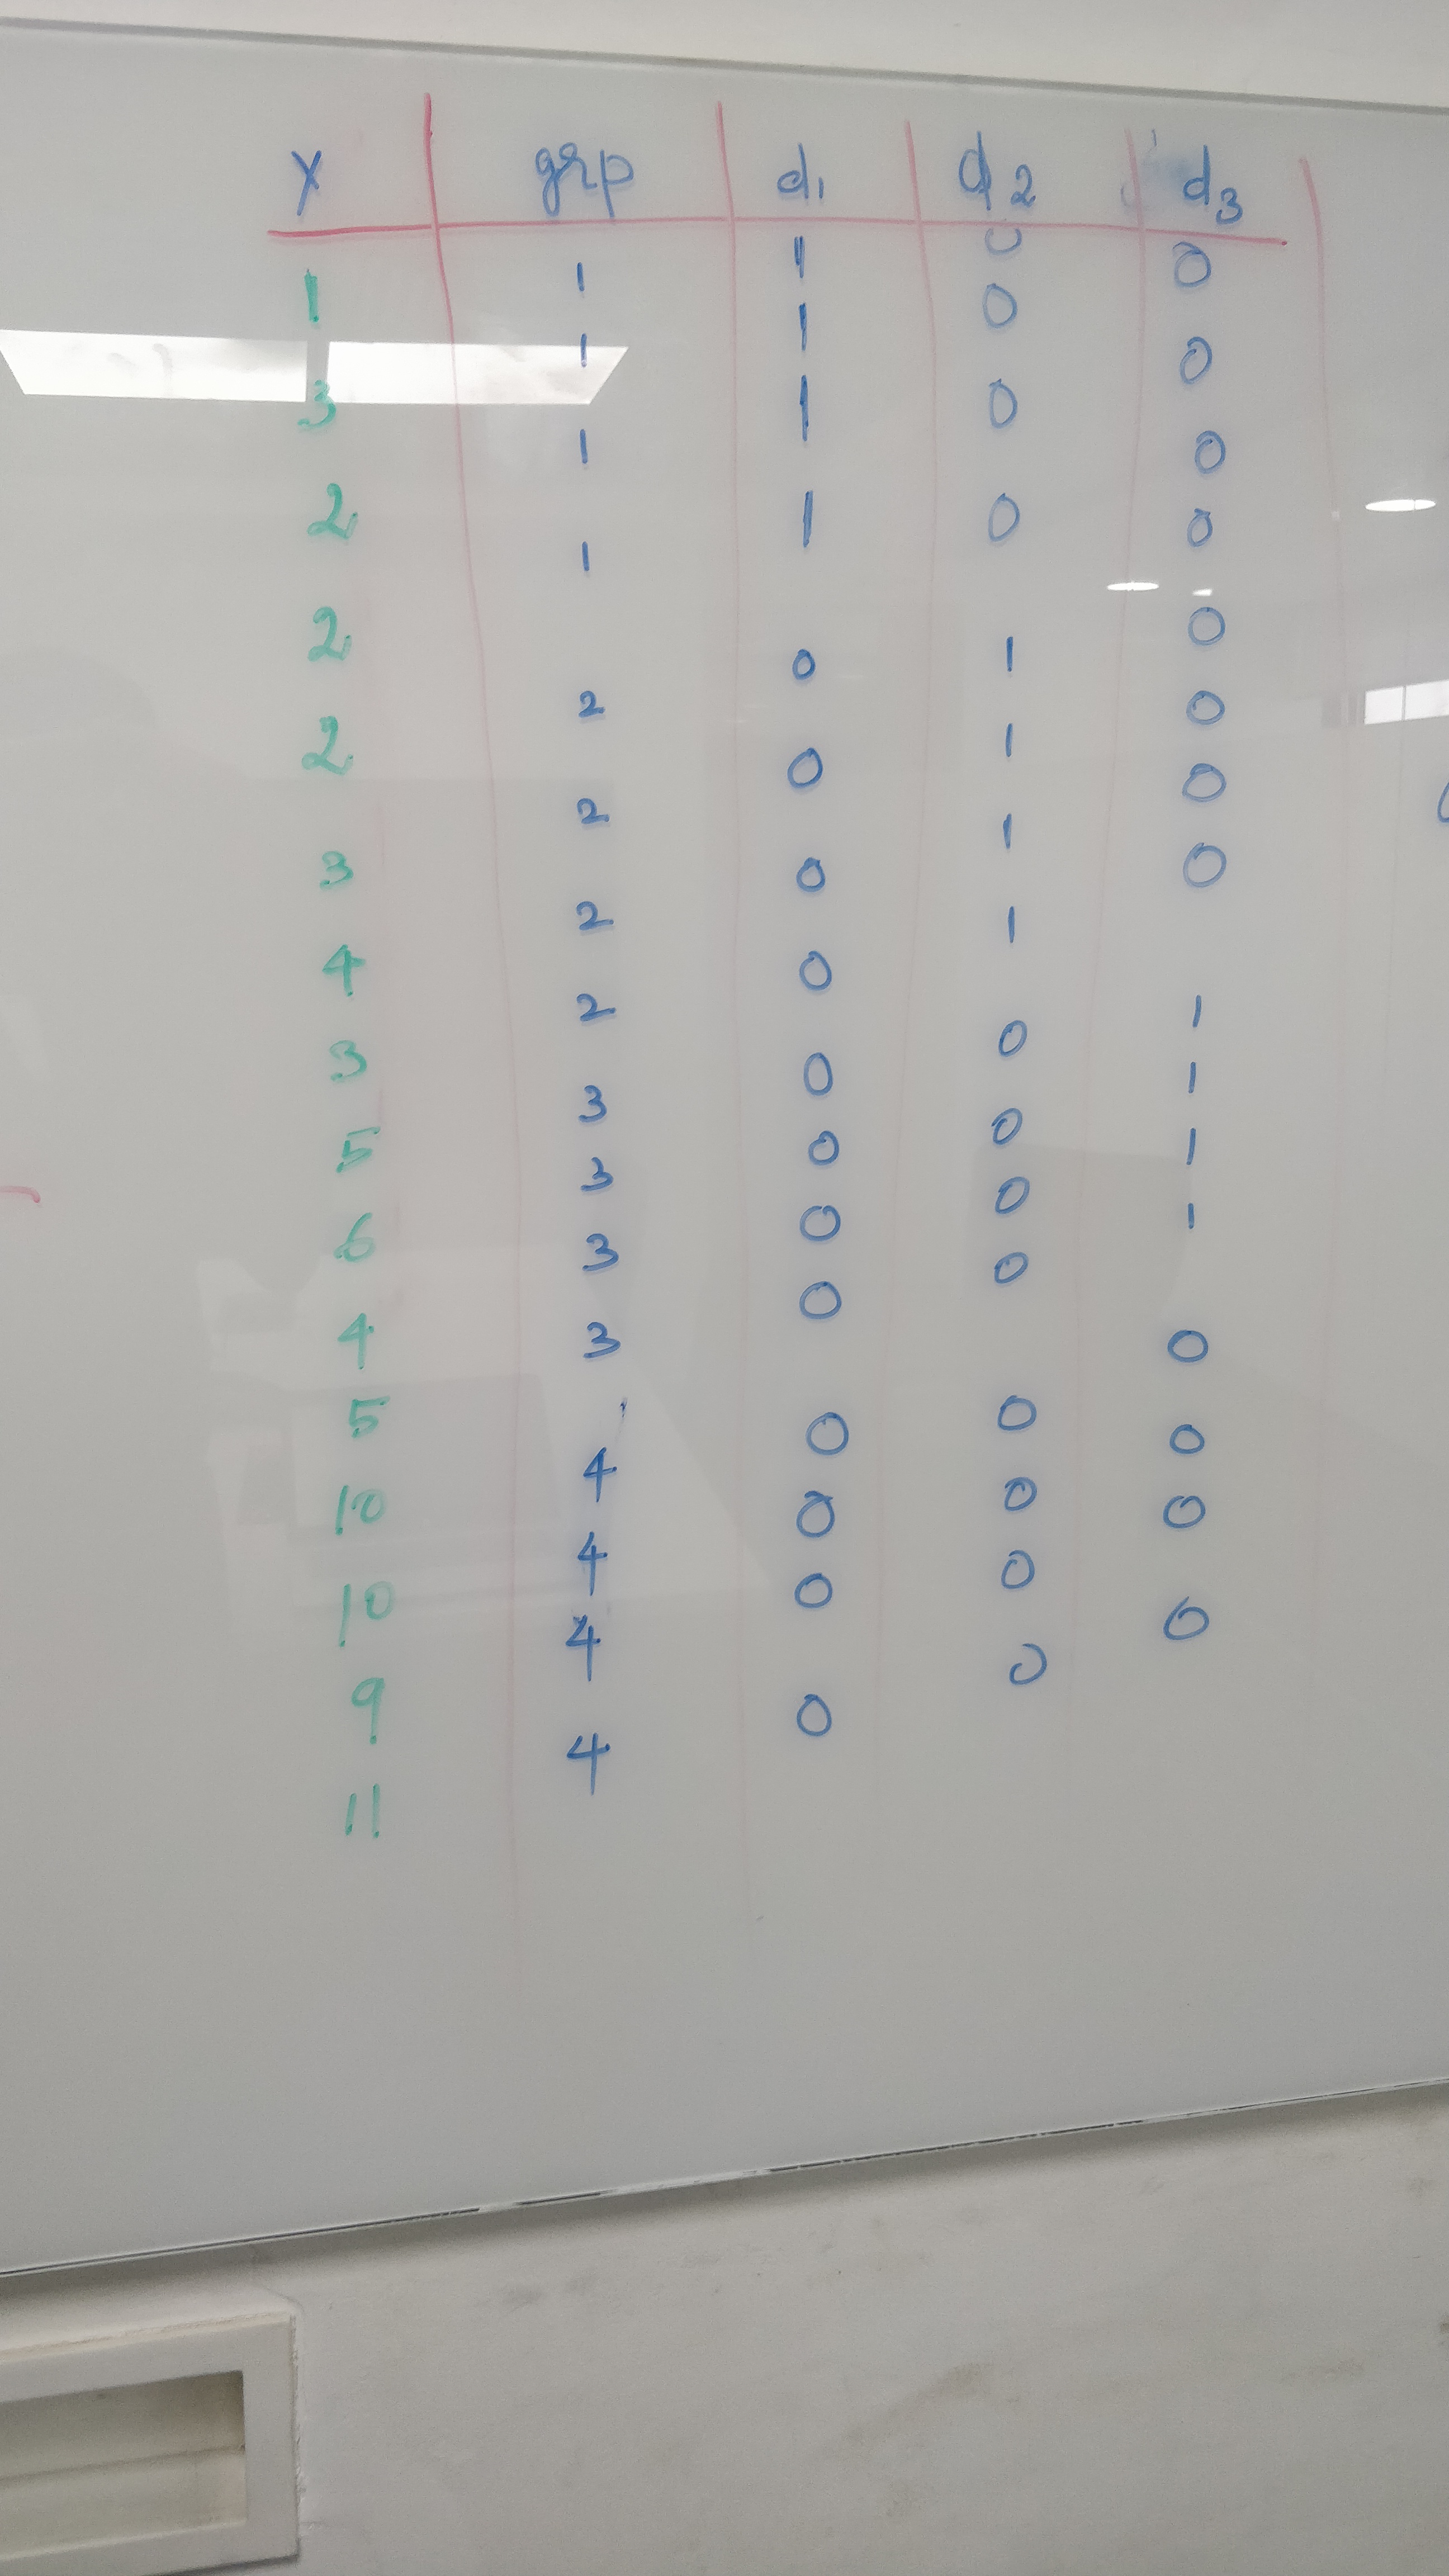 Y grp d1 d2 d3
1 1 1 0 0
3 1 1 0 0
2 1 1 0 0
2 1 1 0 0
2 2 0 1 0
3 2 0 1 0
4 2 0 1 0
3 2 0 1 0
5 3 0 0 1
6 3 0 0 1
4 3 0 0 1
5 3 0 0 1
10 4 0 0 0
10 4 0 0 0
9 4 0 0 0
11 4 0 0 0